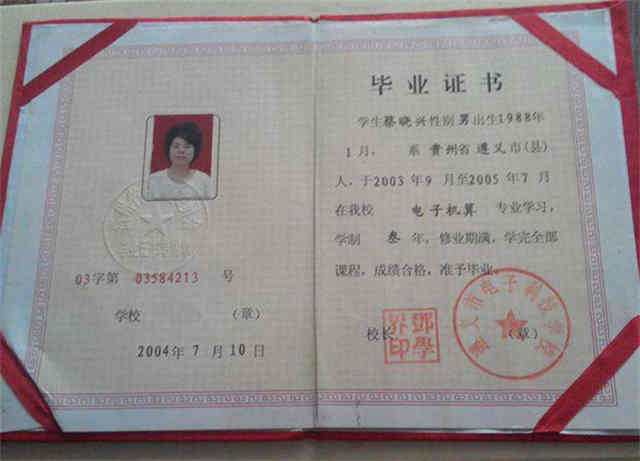 03字第 03584213 号
学校 (章)
2004年7月10日
毕业证书
学生蔡晓兴性别男出生1988年
1月, 系贵州省遵义市(县)
人,于2003年9月至2005年7月
在我校 电子机算 专业学习,
学制 叁 年,修业期满,学完全部
课程,成绩合格,准予毕业。
校长 (章)
遵义市电子科技学校